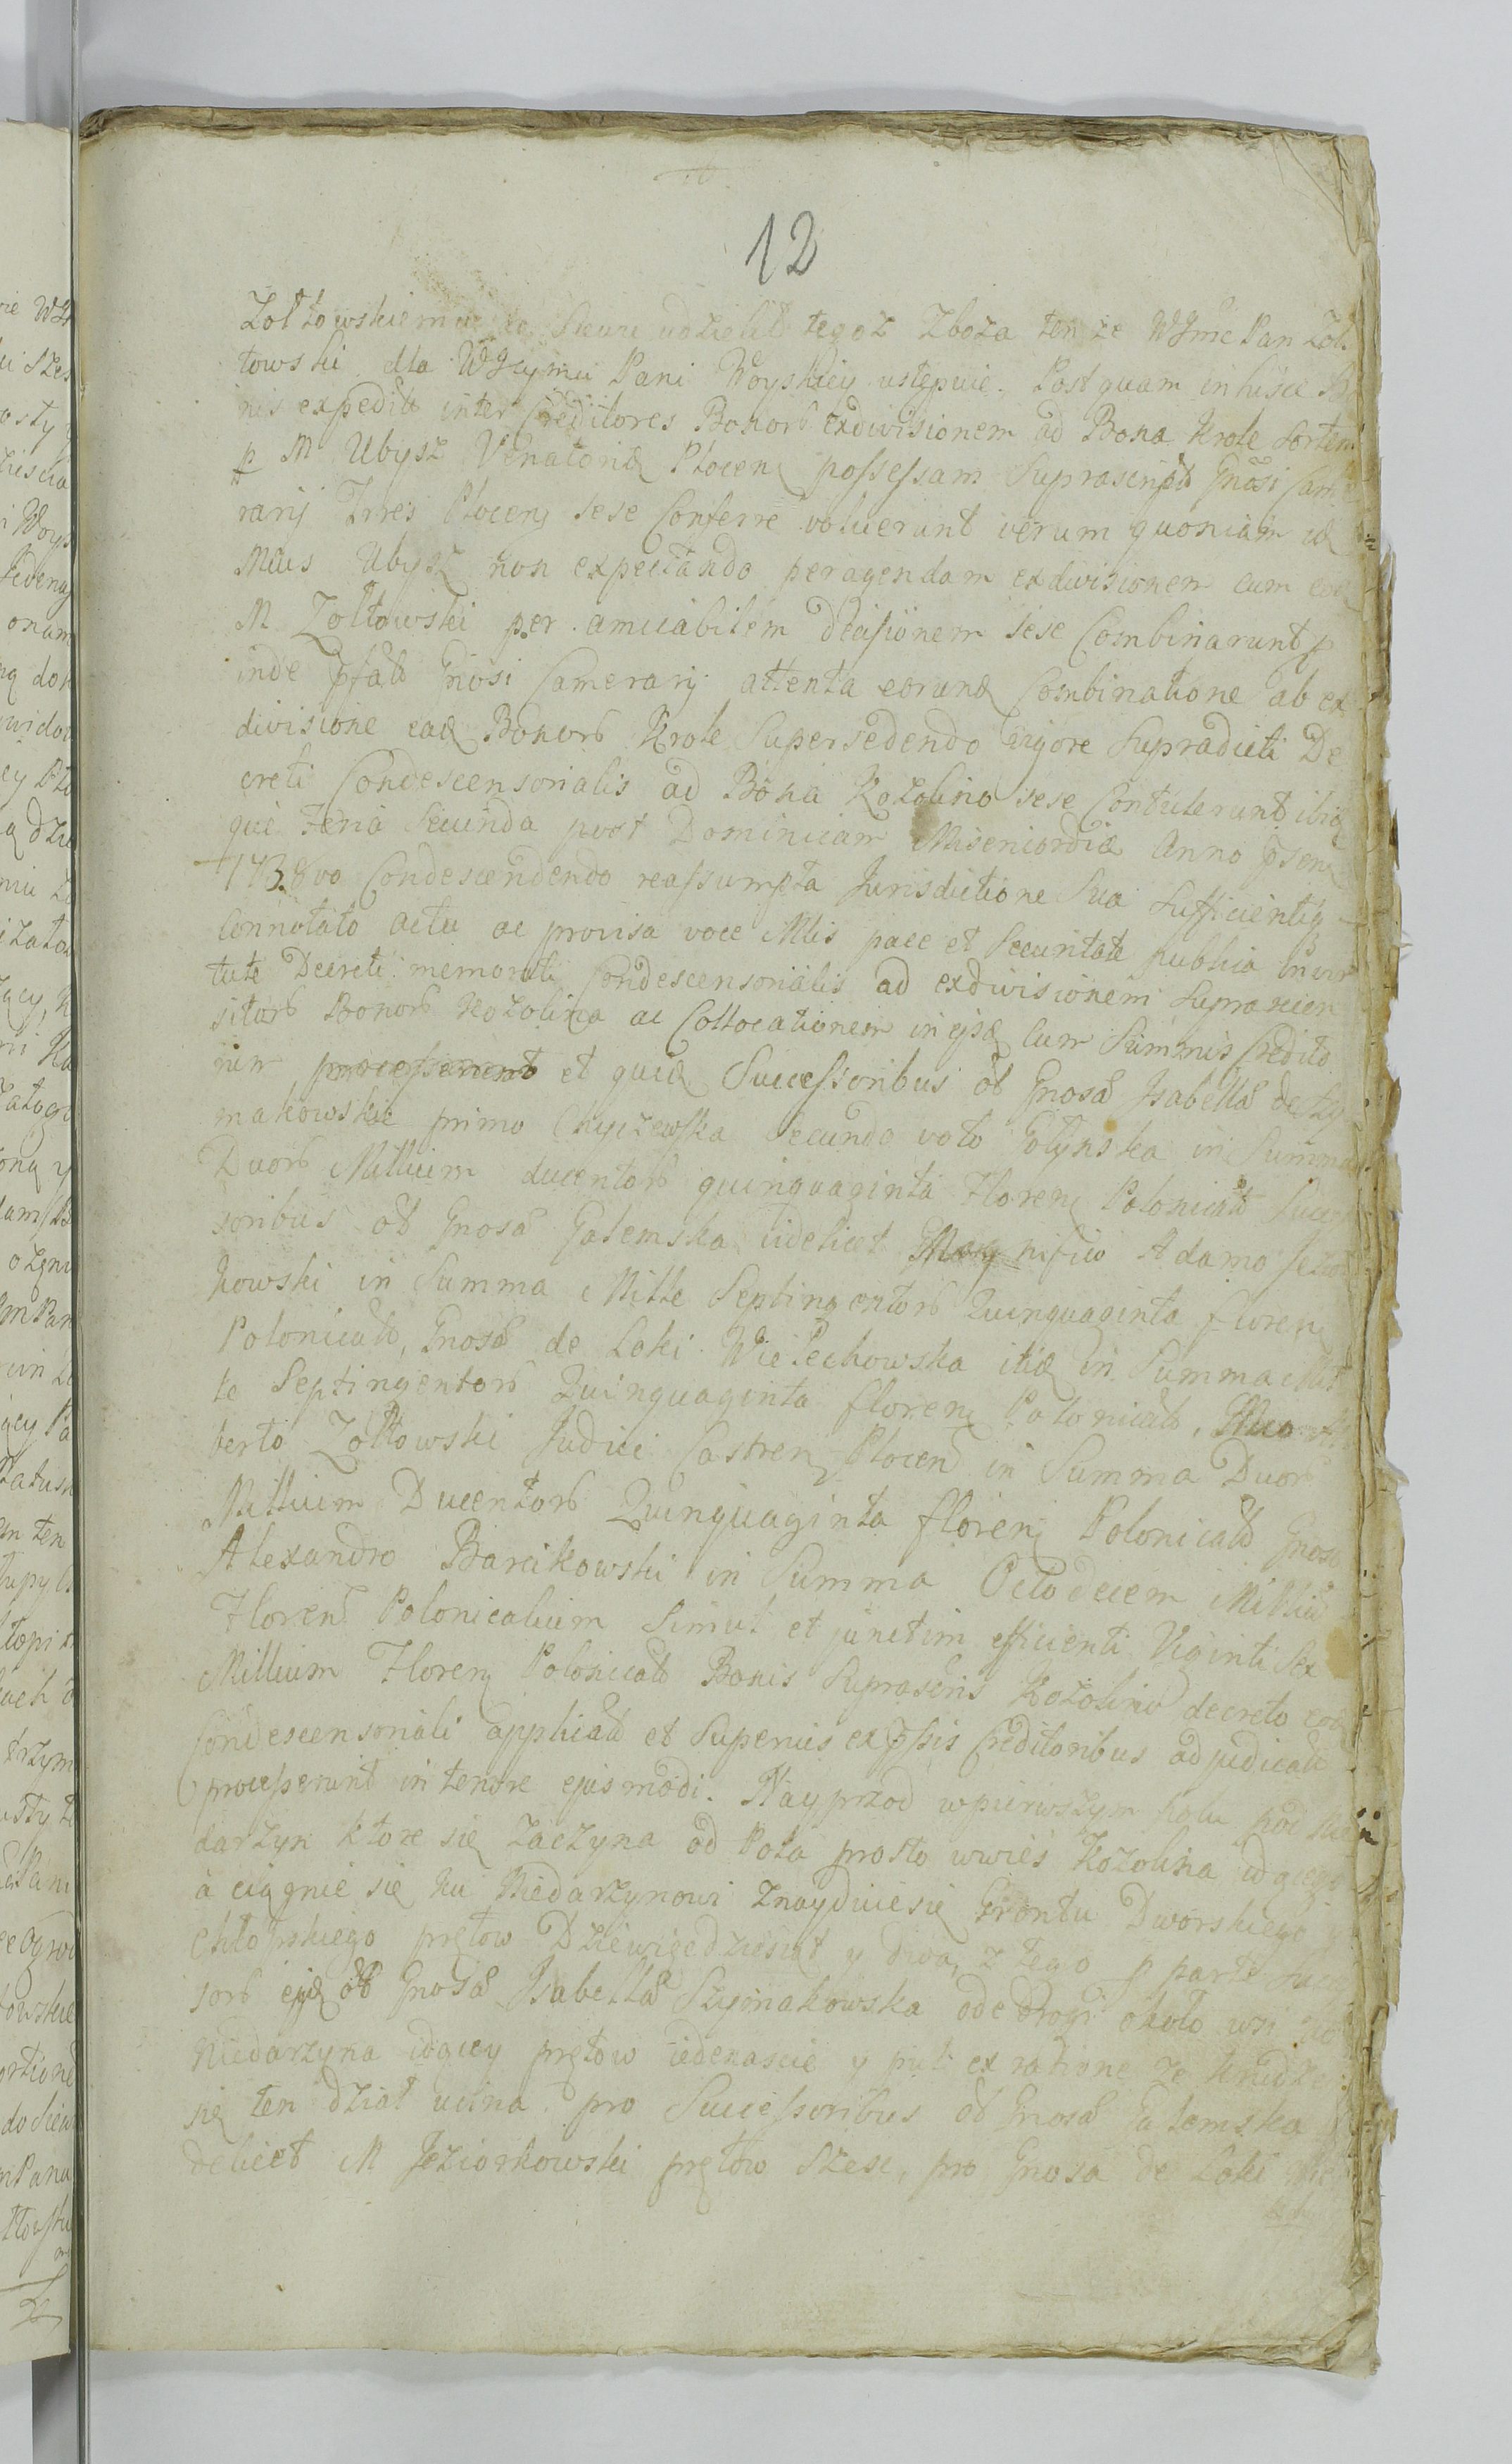 12
Zołtowskiemu udzielił tegoz Zboza ten ze WJmc Pan Zoł
towski dla WJeymci Pani Woyskiey ustępuie. Post quam in hisce Bo
nis expedita inter Creditores Bonorb exdivisionem ad Bona Krole Sortem
p M Ubysz Venatorię Plocenę possessam Suprascript Gnosi Came
rarij Trres Plocenę sese Conferre voluerunt verum quoniam
Mcus Ubysz non expectando peragendam exdivisionem cum
M Zołtowski per amicabilem decisionem sese Combinarunt
inde pfatt Gnosi Camerarij attenta eorund Combinatione ab ex
divisione ead Bonorb Krole Supersedendo vigore Supradicti De
creti Condescensorialis ad Bona Kozolino sese Contulerunt ibid
que Feria Secunda post Dominicam Misericordiæ Anno psenę
1738vo Condescendendo reassumpta Jurisdictione Sua Sufficientiq
Connotato actu ac provisa voce Mlis pace et Securitate publica In vir
tute Decreti memorati Condescensorialis ad exdivisionem Supranien
sitorb Bonorb Kozolina ac Collocationem in ejsd Cum Summis Credito
rum processerunt et quid Successoribus ol Gnosa Jsabella de Szy
makowskie primo Chyczewska Secundo voto Golynska in Summa
Duorb Millium ducentorb quinquaginta Florenę Polonicalb Succes
soribus ol Gnosa Galemska videlicet Magnifico Adamo Jezior
kowski in Summa Mille Septingentorb Quinquaginta florenę
Polonicalb, Gnosa de Loki Wielechowska itid in Summa Mil
le Septingentorb Quinquaginta florenę Polonicalb, Mco
berto Zołtowski Judici Castrenę Plocenę in Summa Duorb
Millium Ducentorb Quinquaginta florenę Polonicalb Gnoso
Alexandro Barcikowski in Summa Octodecem Millium
Florenę Polonicalium Simul et junctim efficienti Viginti Sex
Millium Florenę Polonicalb Bonis Suprascris Kozolino decreto eod
Condescensoriali applicat et Superius expssis Creditoribus adjudicat
processerunt in tenore ejusmodi. Nayprzod wpierwszym Polu pod Nie
darzyn ktore się zaczyna od Pola prosto wwieś Kozolina idącego
a ciągnie się ku Niedarzynowi Znayduie się Gruntu Dworskiego y
Chłopskiego prętow Dziewięćdziesiąt y dwa, z tego p parte Succes
sorb ejd ol Gnosa Jsabella Szymakowska ode drogi około wsi do
Niedarzyna idącey prętow iedenascie y puł ex ratione ze
się ten dział ucina pro Successoribus ol Gnosa Galemska vi
delicet M Jeziorkowski prętow Szesc, pro Gnosa de Loki Wie